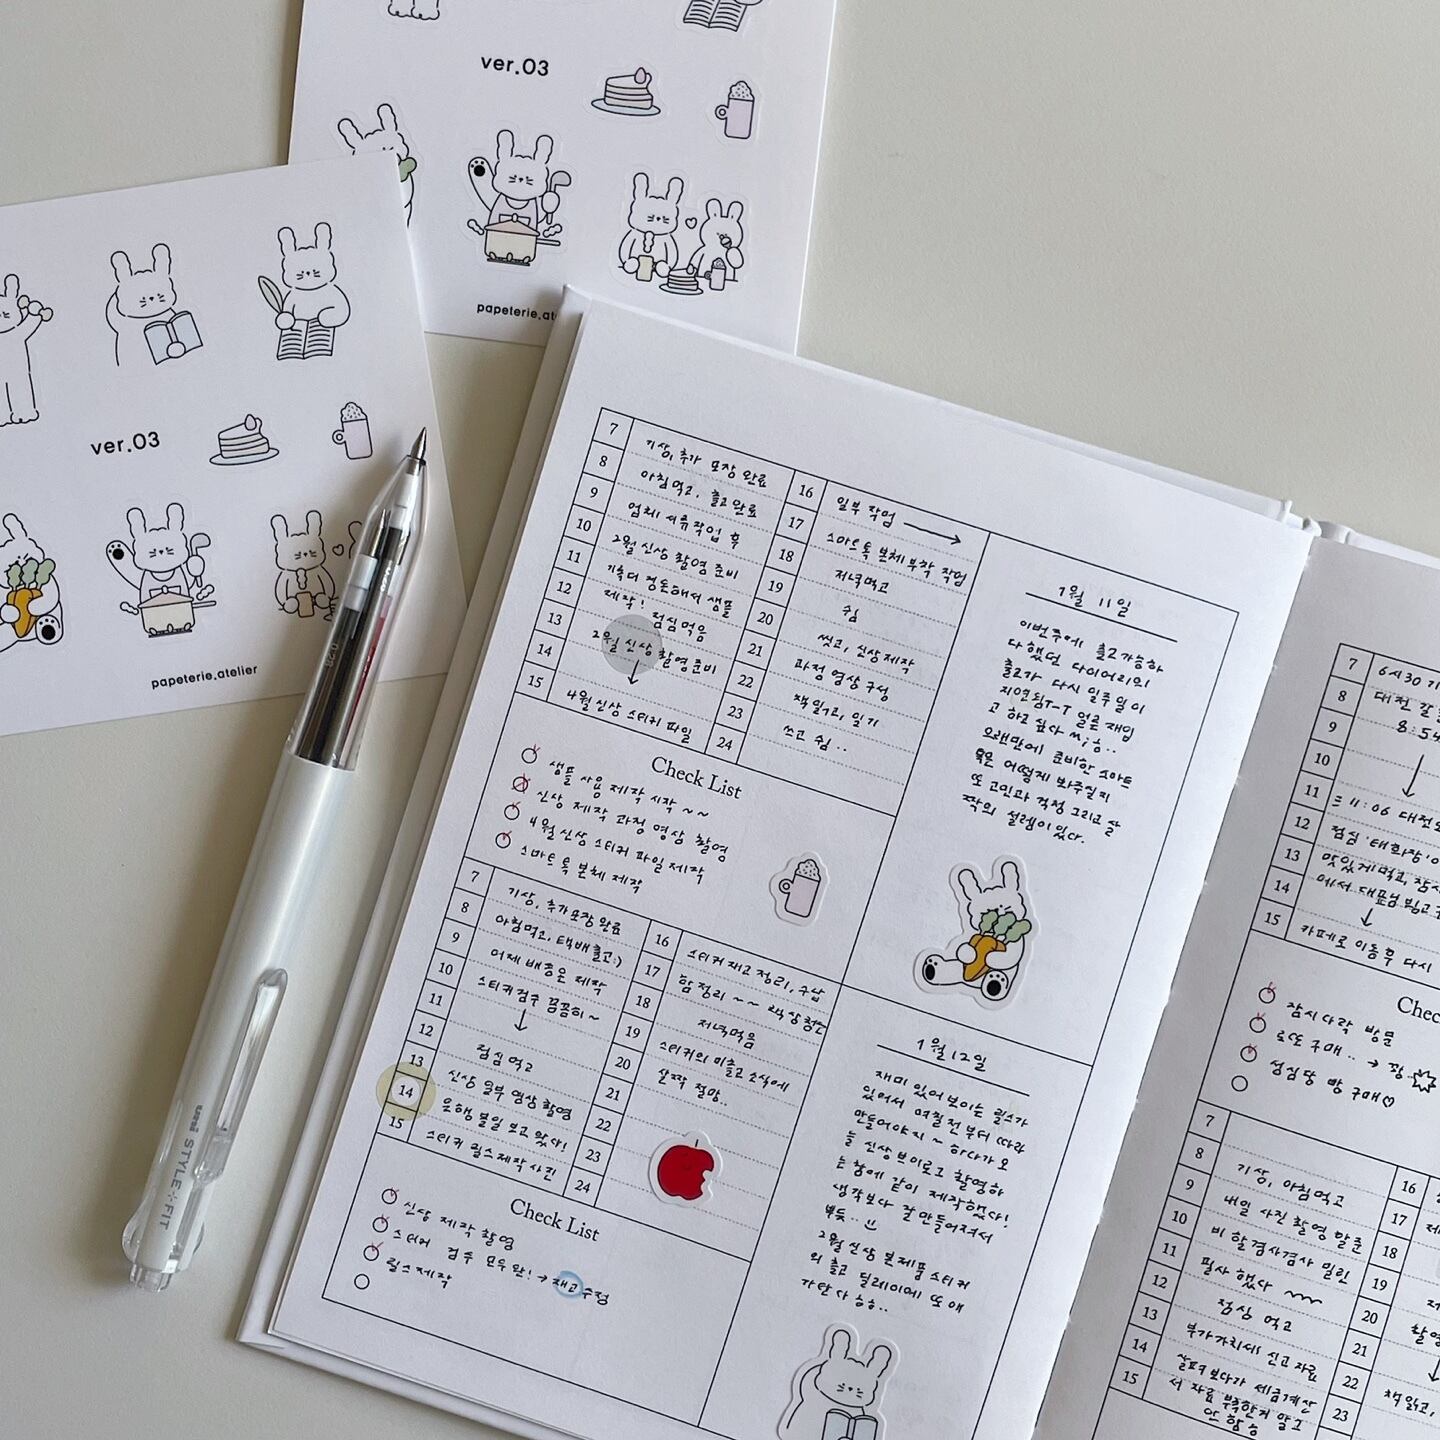 ver.03
papeterie.at
ver.03
papeterie.atelier
uni STYLE+FIT
0.28
7 기상, 추가 포장 완료
8 아침먹고, 출고 완료
9 업체 서류작업 후
10 2월 신상 촬영 준비
11 기획더 정돈해서 샘플
12 제작! 점심먹음
13 2월 신상 촬영준비
14 ↓
15 4월 신상 스티커 파일
16 일부 작업 →
17 스마트톡 본체 부착 작업
18 저녁먹고
19 쉼
20 씻고, 신상제작
21 과정 영상 구성
22 책 읽고, 일기
23 쓰고 쉼..
24
Check List
샘플 사용 제작 시작~~
신상 제작 과정 영상 촬영
4월 신상 스티커 파일 제작
스마트톡 본체 제작
1월 11일
이번주에 출고가능하
다했던 다이어리의
출고가 다시 일주일이
지연됨ㅜㅜ 얼른 재입
고 하고 싶다
오랜만에 준비한 스마트
톡은 어떻게 봐주실지
또 고민과 걱정 그리고 살
짝의 설렘이있다.
7 기상, 추가포장완료
8 아침먹고, 택배출고:)
9 어제 배송온 제작
10 스티커검수 꼼꼼히~
11 ↓
12 점심 먹고
13 신상 일부 영상 촬영
14 은행 볼일 보고 왔다!
15 스티커 릴스제작 사진
16 스티커 재고 정리, 수납
17 함 정리~~ 책상 청소
18 저녁먹음
19 스티커의 미출고 소식에
20 살짝 절망..
21
22
23
24
Check List
신상 제작 촬영
스티커 검수 모두 완! → 재고 수정
릴스 제작
1월 12일
재미 있어 보이는 릴스가
있어서 며칠전부터 따라
만들어야지~ 하다가 오
늘 신상 브이로그 촬영하
는 김에 같이 제작했다!
생각보다 잘만들어져서
뿌듯..
2월 신상 본제품 스티커
의 출고 딜레이에 또 애
가탄다 흐흐..
7 6시30 기
8 대전 갈
9 8:54
10 ↓
11 = 11:06 대전도
12 점심 '태화장'
13 맛있게먹고, 잠시
14 에서 대표님 뵙고
15 카페로 이동후 다시
Chec
잠시다락 방문
로또 구매.. → 꽝
성심당 빵 구매♡
7
8 기상, 아침먹고
9 내일 사진 촬영 말준
10 비 할겸사겸사 밀린
11 필사 했다
12 점심 먹고
13 부가가치세 신고 자료
14 살펴보다가 세금계산
15 서 자료 부족한거 알고
16
17
18
19
20
21
22 책읽고,
23